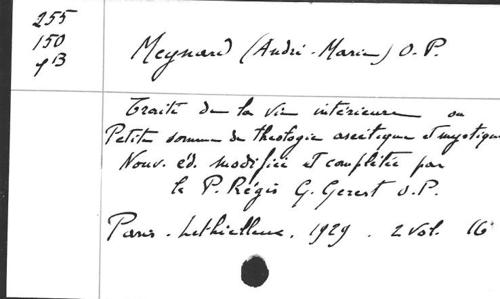 255
150
γB
Meynard (André-Marie) O.P.
Traité de la vie intérieure ou
Petite somme de théologie ascétique et mystique
Nouv. éd. modifiée et complétée par
le P. Régis G. Gerest O.P.
Paris. Lethielleux. 1929. 2 vol. 16°